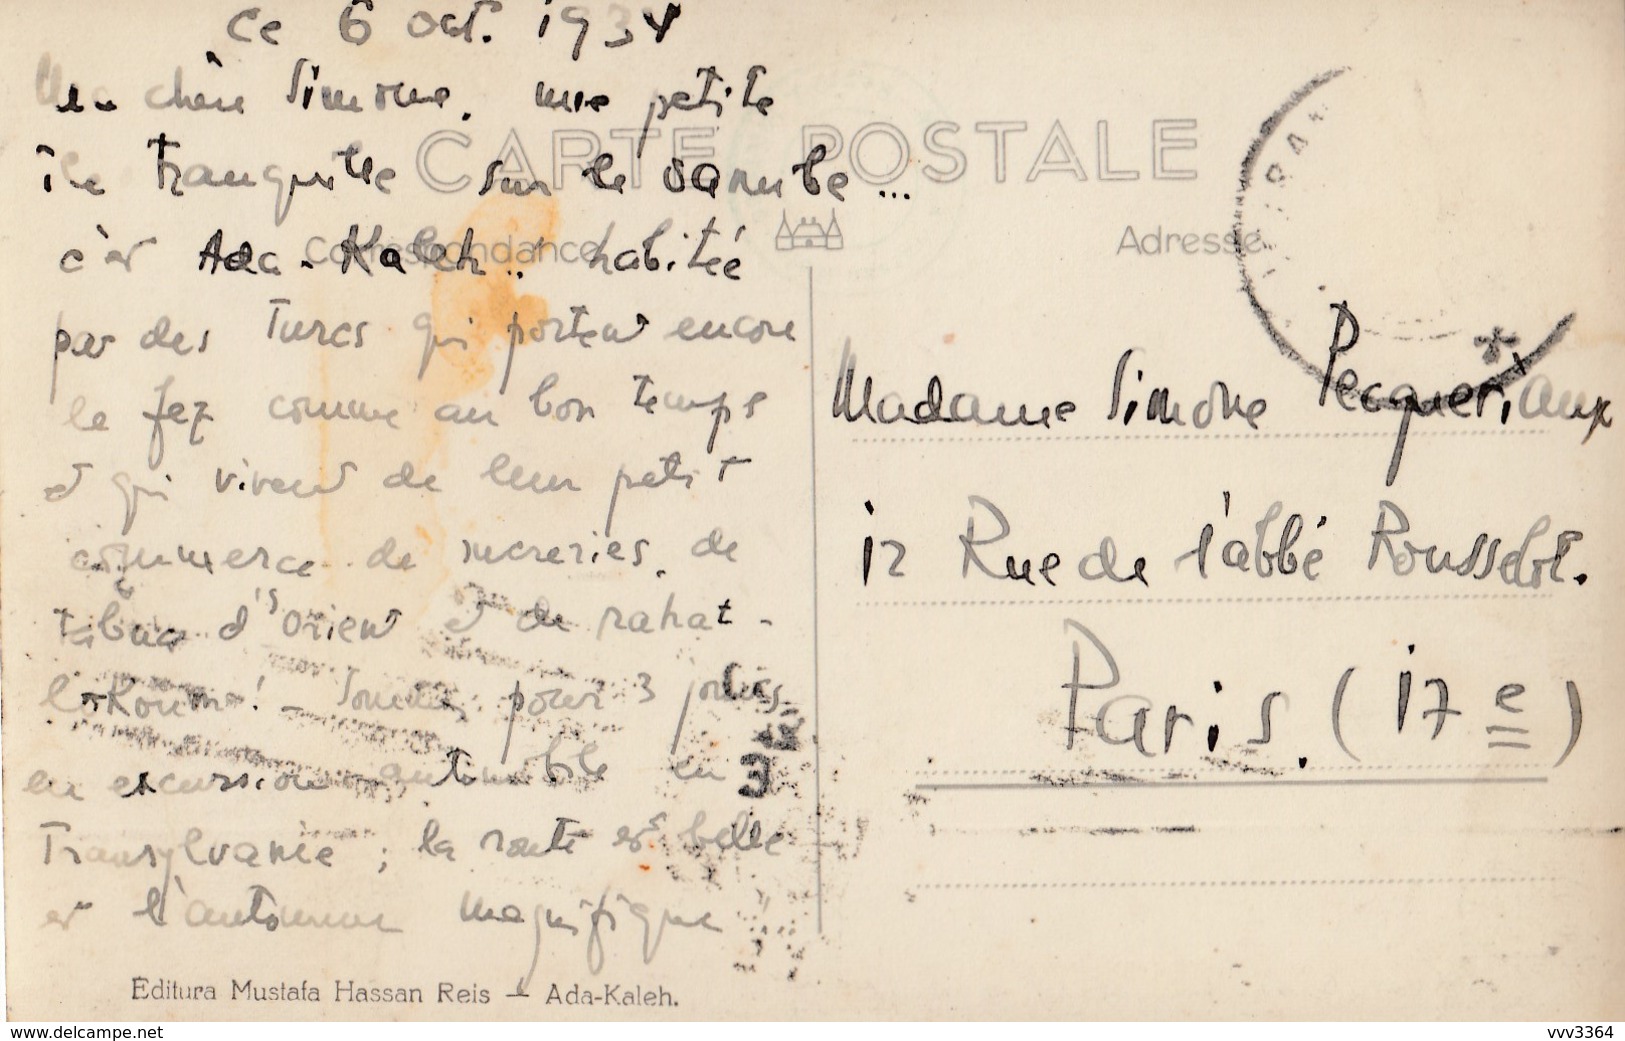 Ce 6 Oct. 1934
Ma chère Simone, une petite
île tranquille sur le Danube...
c'est Ada-Kaleh.. habitée
par des Turcs qui portent encore
le fez comme au bon temps
et qui vivent de leur petit
commerce de sucreries, de
tabacs d'Orient et de rahat-
lokoum! - Sommes pour 3 jours
en excursion automobile en
Transylvanie; la route est belle
et l'automne magnifique
CARTE POSTALE
Correspondance
Adresse
Madame Simone Pecqueriaux
12 Rue de l'abbé Rousselot.
Paris. (17e)
Editura Mustafa Hassan Reis — Ada-Kaleh.
www.delcampe.net
vvv3364